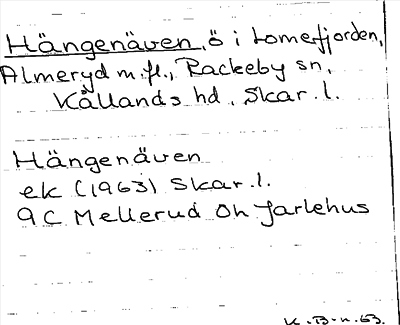 Hängenäven, ö i Lomefjorden,
Almeryd m.fl., Rackeby sn,
Kållands hd, Skar.l.
Hängenäven
ek (1963) Skar.l.
9C Mellerud Oh Jarlehus
K.B-n.63.